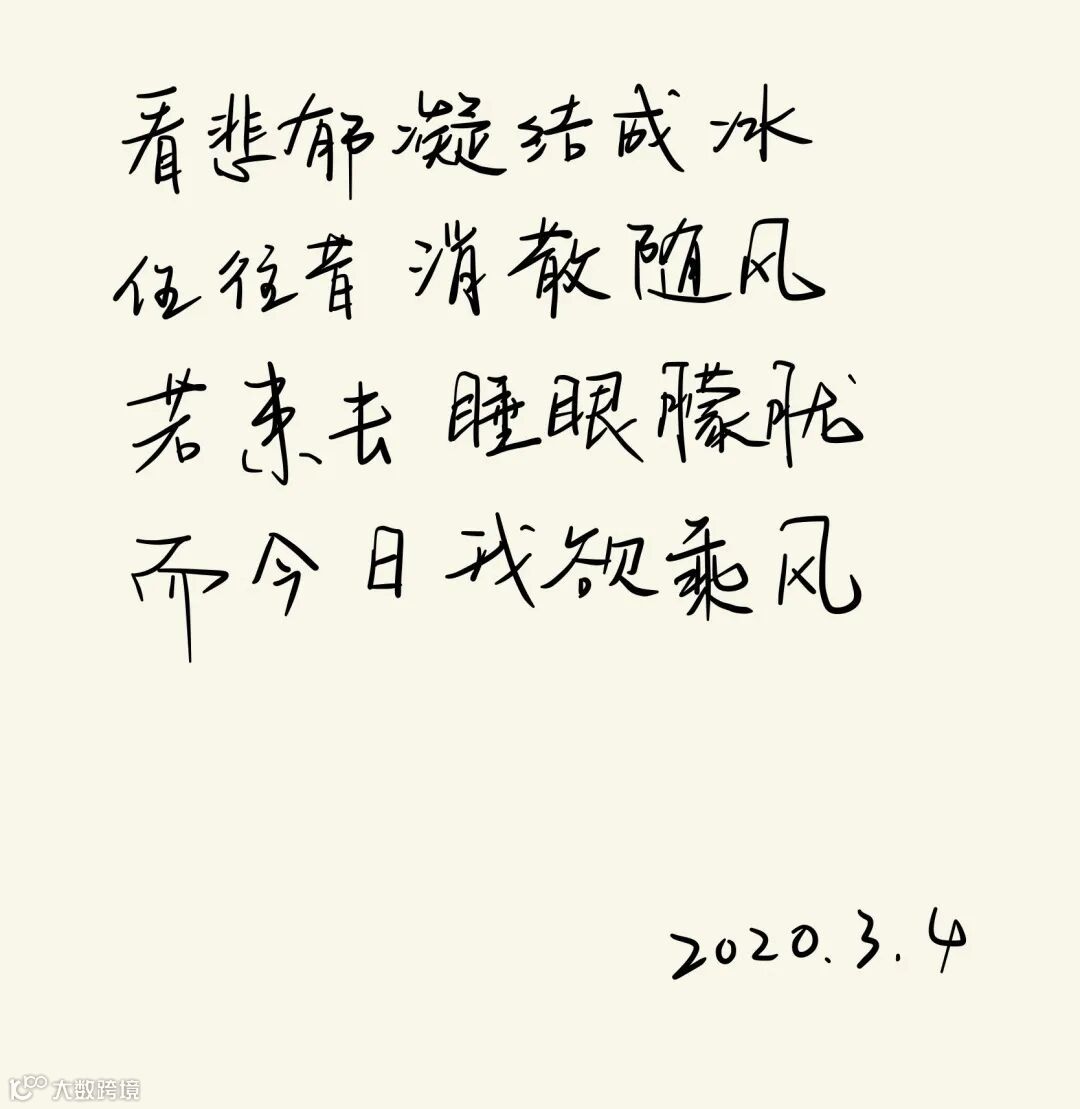 看悲郁凝结成冰
任往昔消散随风
若来去睡眼朦胧
而今日我欲乘风
2020.3.4
大数跨境